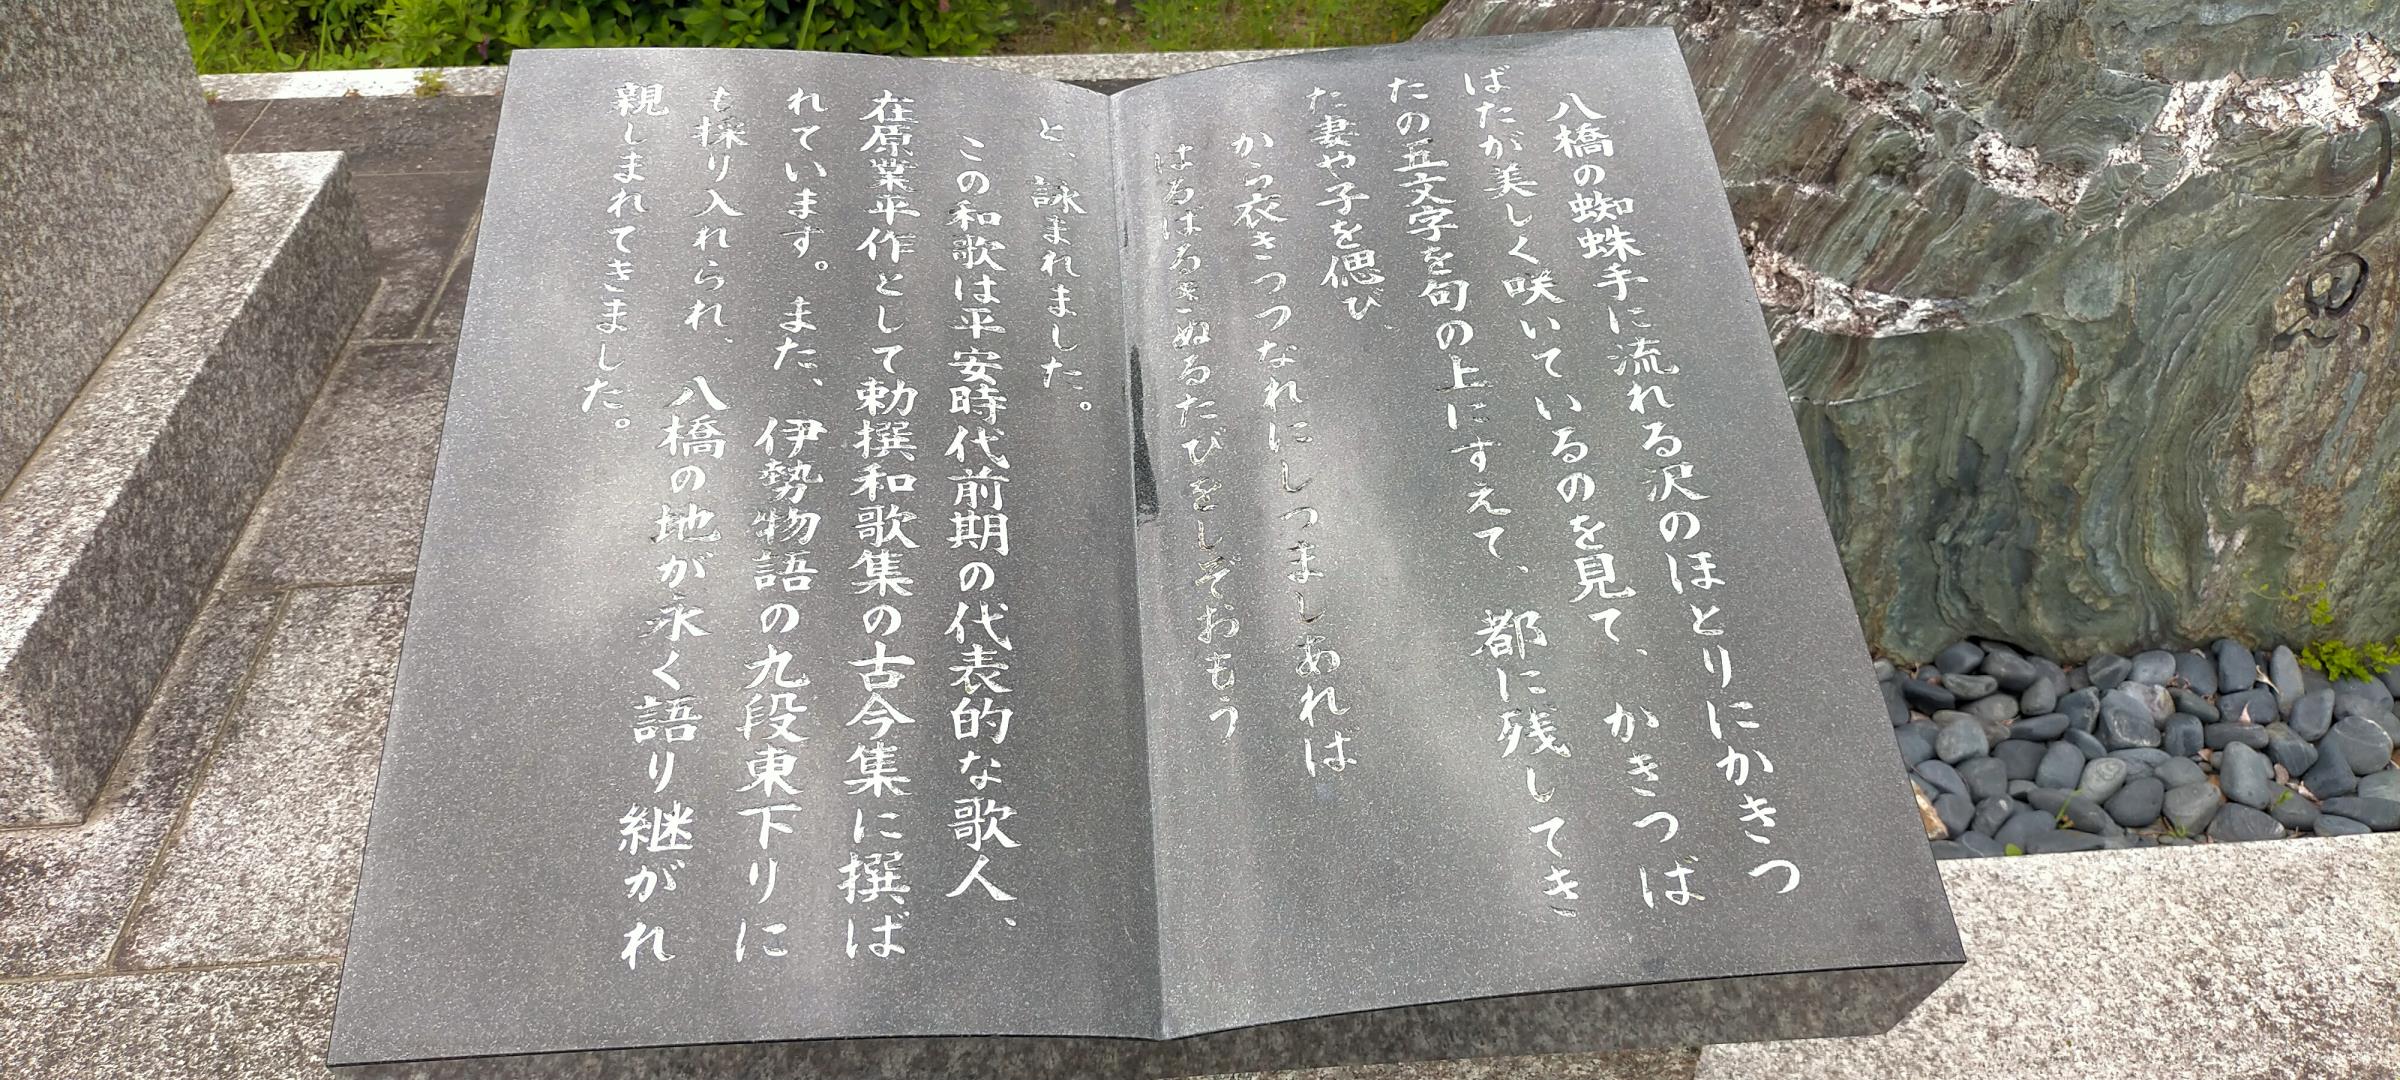 八橋の蜘蛛手に流れる沢のほとりにかきつ
ばたが美しく咲いているのを見て、かきつば
たの五文字を句の上にすえて、都に残してき
た妻や子を偲び、
から衣きつつなれにしつましあれば
はるばるきぬるたびをしぞおもう
と、詠まれました。
この和歌は平安時代前期の代表的な歌人、
在原業平作として勅撰和歌集の古今集に撰ば
れています。また、伊勢物語の九段東下りに
も採り入れられ、八橋の地が永く語り継がれ
親しまれてきました。
思